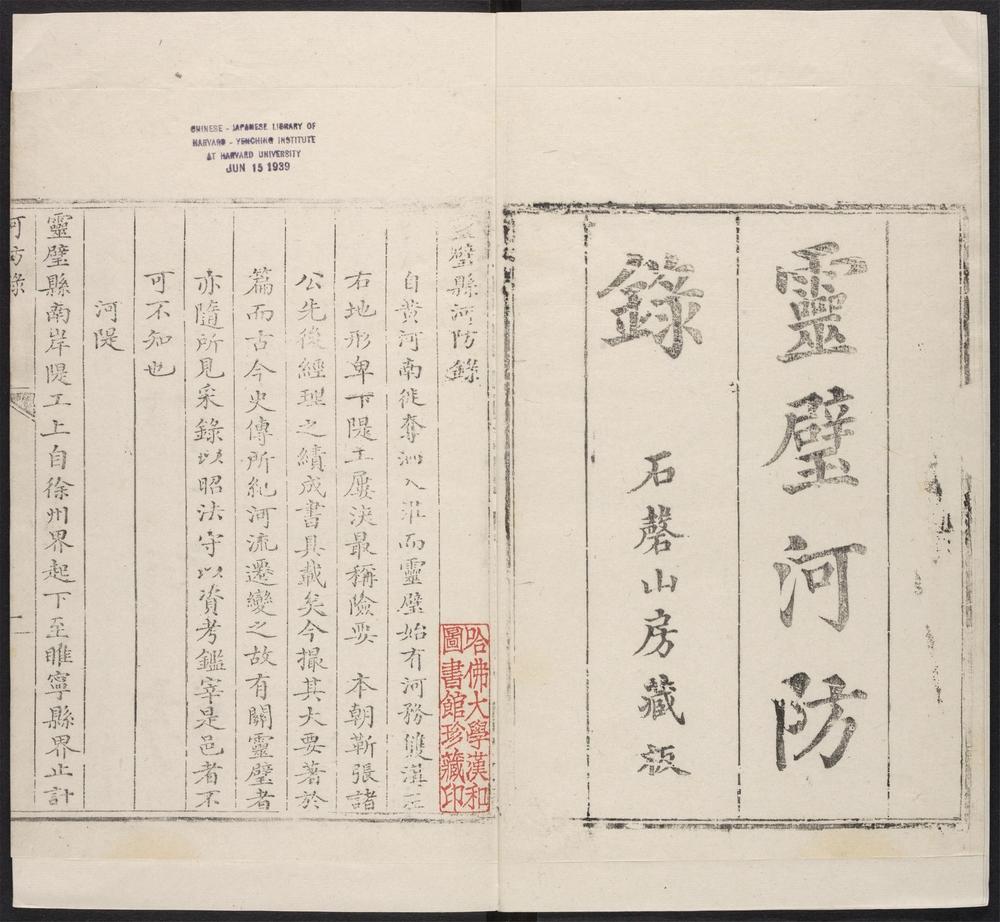 靈璧河防
錄
石磬山房藏板
CHINESE - JAPANESE LIBRARY OF
HARVARD - YENCHING INSTITUTE
AT HARVARD UNIVERSITY
JUN 15 1939
璧縣河防錄
哈佛大學漢和
圖書館珍藏印
自黃河南徙奪泗入淮而靈璧始有河務雙溝
右地形卑下隄工屢決最稱險要 本朝靳張諸
公先後經理之績成書具載矣今撮其大要著於
篇而古今史傳所紀河流遷變之故有關靈璧者
亦隨所見采錄以昭法守以資考鑑宰是邑者不
可不知也
河隄
靈璧縣南岸隄工上自徐州界起下至睢寧縣界止計
河防錄
一